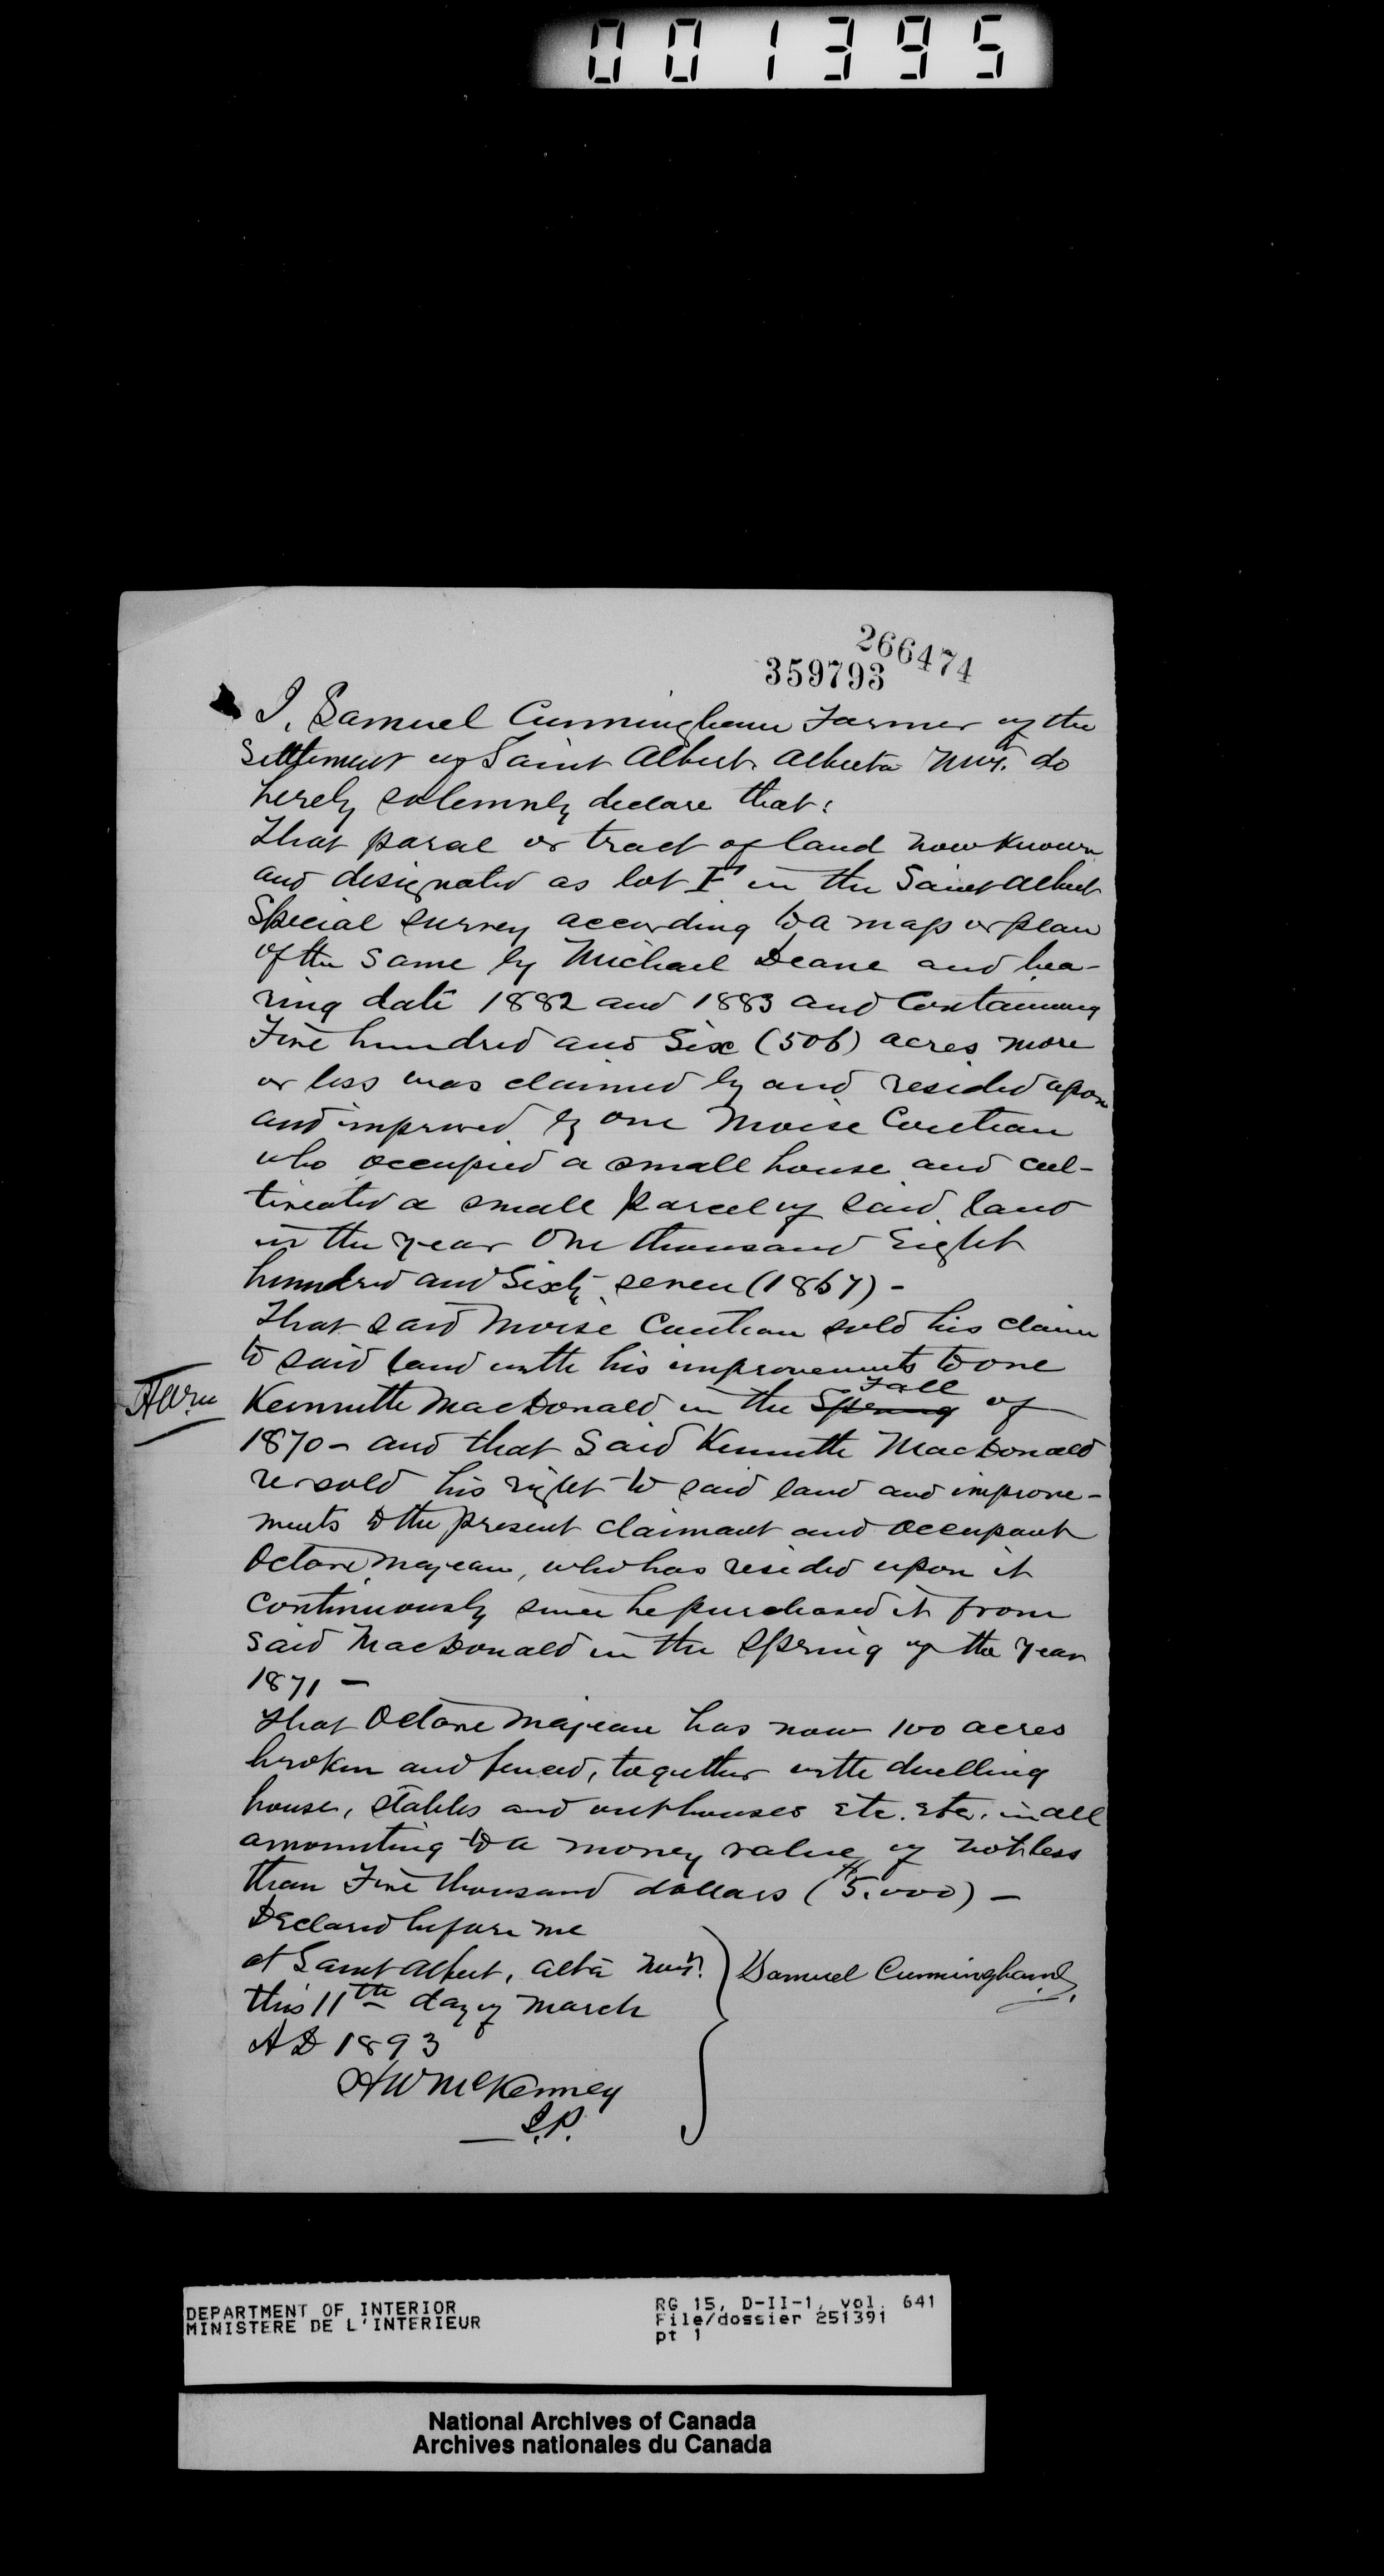 001395
266474
359793
I, Samuel Cunningham Farmer of the
Settlement of Saint Albert Alberta NWT. do
hereby solemnly declare that:
That parcel or tract of land now known
and designated as lot F in the Saint Albert
Special survey according to a map or plan
of the same by Michael Deane and bea-
ring date 1882 and 1883 and Containing
Five hundred and Six (506) acres more
or less was claimed by and resided upon
and improved by one Moise
who occupied a small house and cul-
tivated a small parcel of said land
in the year One thousand Eight
hundred and Sixty seven (1867) -
That said Moise sold his claim
to said land with his improvements to one
Fall
Kennitte MacDonald in the Spring of
1870 - and that Said Kennitte MacDonald
re-sold his right to said land and improve-
ments to the present claimant and occupant
Octave Majeau, who has resided upon it
continuously since he purchased it from
said MacDonald in the Spring of the year
1871 -
That Octave Majeau has now 100 acres
broken and fenced, together with dwelling
house, stables and outhouses etc. etc. in all
amounting to a money value of not less
than Five thousand dollars ($5.000) -
Declared before me
at Saint Albert, Alta NWT.
this 11th day of March
AD 1893
Samuel Cunningham
HW McKenney
J.P.
DEPARTMENT OF INTERIOR
MINISTERE DE L'INTERIEUR
RG 15, D-II-1, vol. 641
File/dossier 251391
pt 1
National Archives of Canada
Archives nationales du Canada